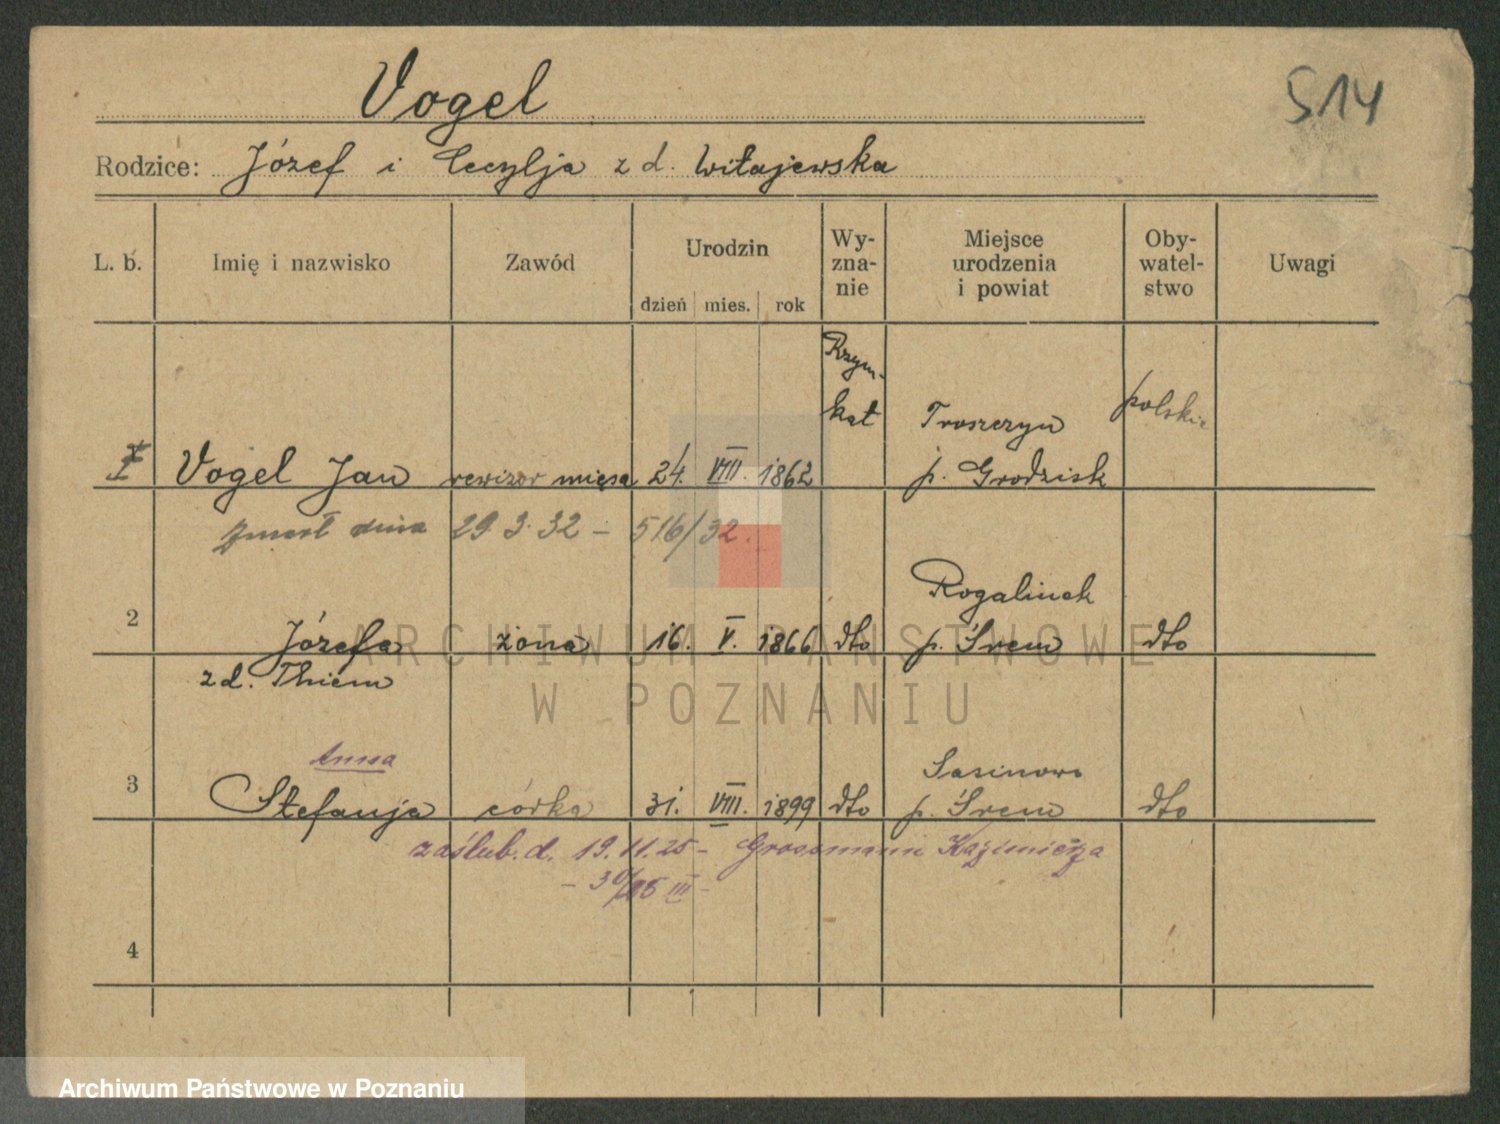 Vogel
514
Rodzice: Józef i Cecylja z d. Witajewska
L. b. Imię i nazwisko Zawód Urodzin dzień mies. rok Wy-zna-nie Miejsce urodzenia i powiat Oby-watel-stwo Uwagi
Rzym-kat
Troszczyn polskie
Vogel Jan rewizor mięsa 24. VIII. 1862 p. Grodzisk
zmarł dnia 29.3.32 – 516/32.
Rogalinek
2 Józefa żona 16. V. 1866 dto p. Śrem dto
z d. Thiem
Anna
Sasinowo
3 Stefanja córka 31. VIII. 1899 dto p. Śrem dto
zaślub. d. 19.11.25 – Grossmann Kazimierza
4
ARCHIWUM PAŃSTWOWE
W POZNANIU
Archiwum Państwowe w Poznaniu